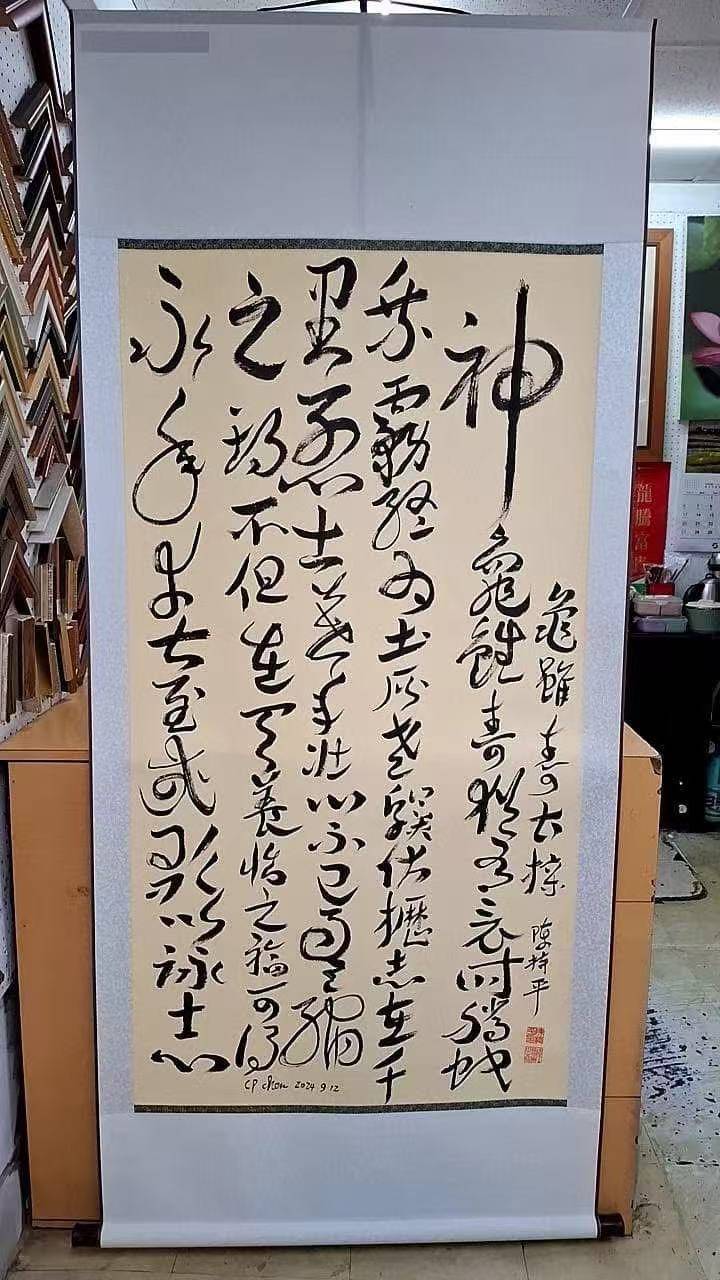 龜雖壽 曹操 陳持平
神龜雖壽猶有竟時騰蛇
乘霧終為土灰老驥伏櫪志在千
里烈士暮年壯心不已盈縮
之期不但在天養怡之福可得
永年幸甚至哉歌以詠志
CP Chen 2024 9 12
龍騰富